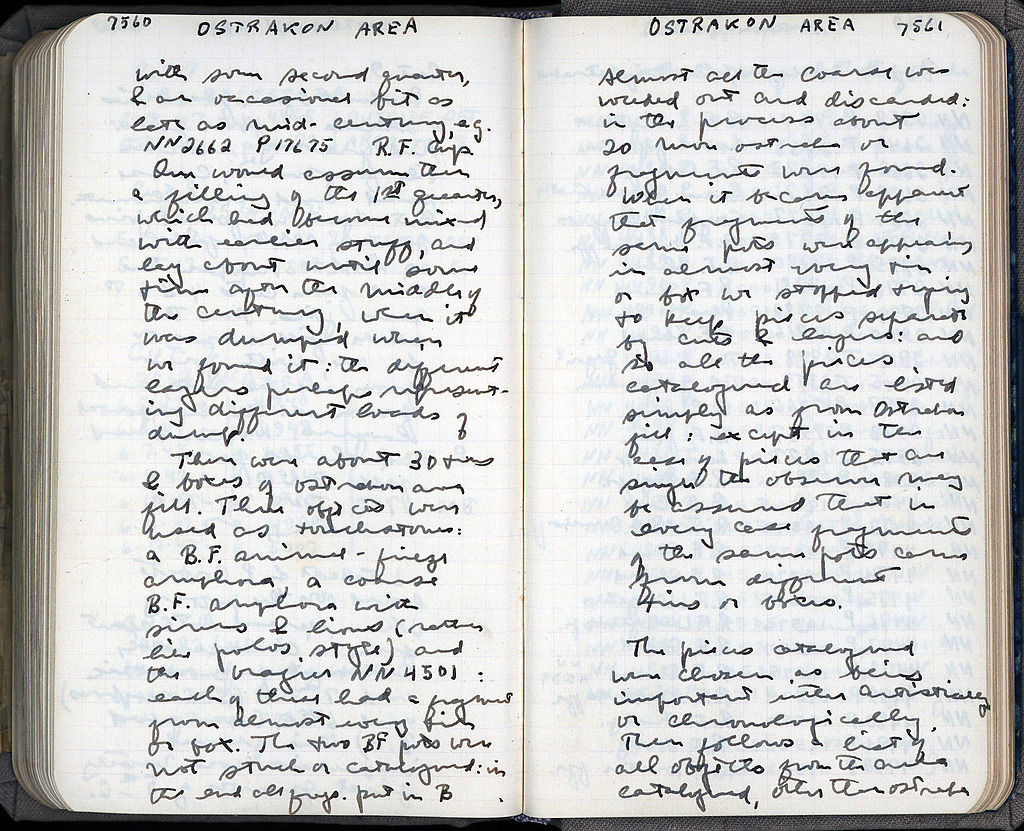 7560 OSTRAKON AREA
with some second quarter,
& an occasional bit as
late as mid-century, e.g.
NN2662 P17675 R.F. Cup.
One would assume then
a filling of the 1st quarter,
which had become mixed
with earlier stuff, and
lay about until some
time after the middle of
the century, when it
was dumped where
we found it: the different
layers perhaps represent-
ing different loads of
dump.
There were about 30 tins
& boxes of ostrakon area
fill. Three objects were
used as touchstones:
a B.F. animal-frieze
amphora, a coarse
B.F. amphora with
sirens & lions (rather
like polos style) and
the krater NN 4501:
each of these had a fragment
from almost every tin
or box. The two BF pots were
not struck or catalogued: in
the end all frags. put in B
OSTRAKON AREA 7561
Almost all the coarse was
weeded out and discarded:
in the process about
20 more ostraka or
fragments were found.
When it became apparent
that fragments of the
same pots were appearing
in almost every tin
or box we stopped trying
to keep pieces separate
by cuts & layers: and
so all the pieces
catalogued are listed
simply as from Ostrakon
fill: except in the
case of pieces that are
single the observer may
be assured that in
every case fragments
of the same pots came
from different
tins or boxes.
The pieces catalogued
were chosen as being
important either artistically
or chronologically.
There follows a list of
all objects from the area
catalogued, other than ostraka